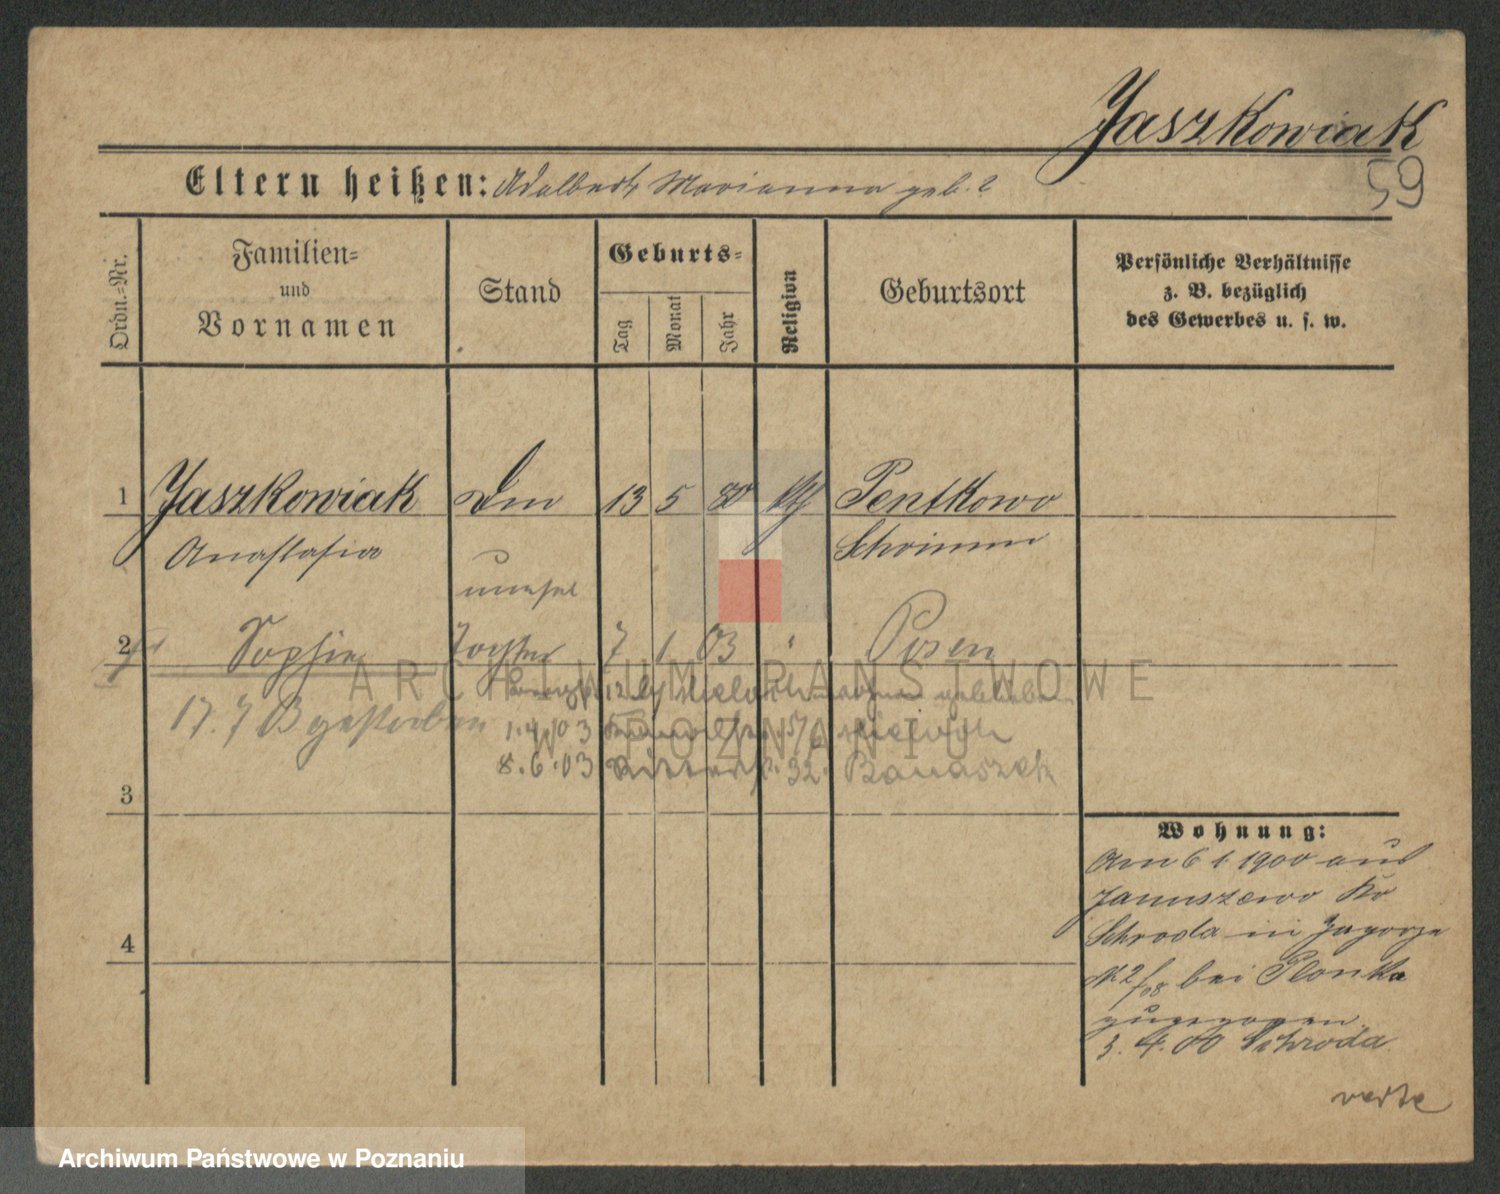 Jaszkowiak
59
Eltern heißen: Adalbert, Marianna geb. ?
Ordn.-Nr.
Familien-
und
Vornamen
Stand
Geburts-
Tag
Monat
Jahr
Religion
Geburtsort
Persönliche Verhältnisse
z. B. bezüglich
des Gewerbes u. s. w.
1 Jaszkowiak 13 5 80 Pentkowo
Anastasia Schrimm
unehel
2 Sophie Tochter 7 1 03 " Posen
17. 7 03 gestorben
1.4.03
8.6.03 Ritterstr. 32. Banaszek
3
4
Wohnung:
Am 6 1. 1900 aus
Januszewo Kr
Schroda in Zagorze
N. 2/ bei Plonka
zugezogen.
3. 4. 00 Schroda
verte
ARCHIWUM PAŃSTWOWE
W POZNANIU
Archiwum Państwowe w Poznaniu